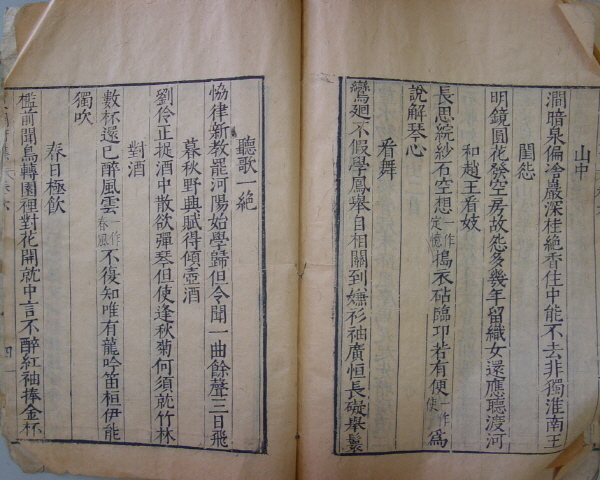 山中
澗暗泉偏冷巖深桂絶香住中能不去非獨淮南王
閨怨
明鏡圓花發空房故怨多幾年留織女還應聽渡河
和越王看妓
長思綄紗石空想一作定憶搗衣砧臨卭若有便一作使爲
說解琴心
看舞
鸞廻不假學鳳舉自相關到嫌衫袖廣恒長礙舉鬟
聽歌一絶
恊律新教罷河陽始學歸但令聞一曲餘聲三日飛
暮秋野興賦得傾壺酒
劉伶正捉酒中散欲彈琴但使逢秋菊何須就竹林
對酒
數杯還已醉風雲一作春風不復知唯有龍吟笛桓伊能
獨吹
春日極飲
檻前聞鳥轉園裡對花開就中言不醉紅袖捧金杯